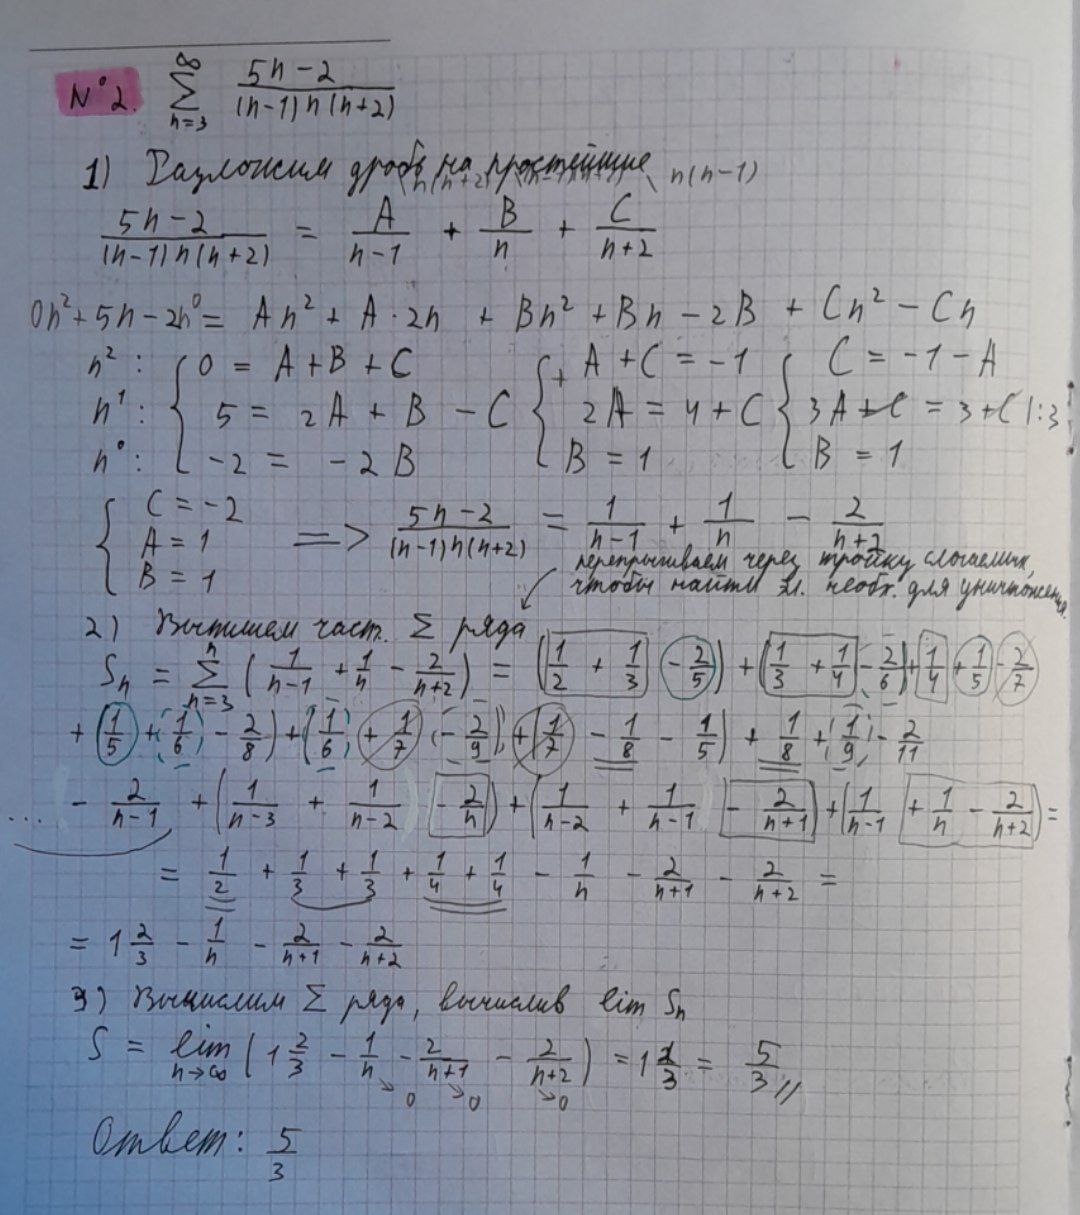 N°2. \sum_{n=3}^{\infty} \frac{5n-2}{(n-1)n(n+2)}
1) Разложим дробь на простейшие n(n-1)
\frac{5n-2}{(n-1)n(n+2)} = \frac{A}{n-1} + \frac{B}{n} + \frac{C}{n+2}
0n^2+5n-2n^0 = An^2 + A·2n + Bn^2 + Bn - 2B + Cn^2 - Cn
n^2: { 0 = A+B+C { A + C = -1 { C = -1 - A
n^1: { 5 = 2A + B - C { 2A = 4 + C { 3A + C = 3 + C |:3
n^0: { -2 = -2B { B = 1 { B = 1
{ C = -2
{ A = 1 => \frac{5n-2}{(n-1)n(n+2)} = \frac{1}{n-1} + \frac{1}{n} - \frac{2}{n+2}
{ B = 1
перепрыгиваем через тройку слагаемых,
чтобы найти эл. необх. для уничтожения.
2) Выпишем част. Σ ряда
S_n = \sum_{n=3}^{n} (\frac{1}{n-1} + \frac{1}{n} - \frac{2}{n+2}) = (\frac{1}{2} + \frac{1}{3} - \frac{2}{5}) + (\frac{1}{3} + \frac{1}{4} - \frac{2}{6}) + \frac{1}{4} + \frac{1}{5} - \frac{2}{7}
+ (\frac{1}{5} + \frac{1}{6} - \frac{2}{8}) + (\frac{1}{6} + \frac{1}{7} - \frac{2}{9}) + (\frac{1}{7} - \frac{1}{8} - \frac{1}{5}) + \frac{1}{8} + \frac{1}{9} - \frac{2}{11}
... - \frac{2}{n-1} + (\frac{1}{n-3} + \frac{1}{n-2} - \frac{2}{n}) + (\frac{1}{n-2} + \frac{1}{n-1} - \frac{2}{n+1}) + (\frac{1}{n-1} + \frac{1}{n} - \frac{2}{n+2}) =
= \frac{1}{2} + \frac{1}{3} + \frac{1}{3} + \frac{1}{4} + \frac{1}{4} - \frac{1}{n} - \frac{2}{n+1} - \frac{2}{n+2} =
= 1\frac{2}{3} - \frac{1}{n} - \frac{2}{n+1} - \frac{2}{n+2}
3) Вычислим Σ ряда, вычислив lim S_n
S = \lim_{n→∞} (1\frac{2}{3} - \frac{1}{n} - \frac{2}{n+1} - \frac{2}{n+2}) = 1\frac{2}{3} = \frac{5}{3} //
↘0 ↘0 ↘0
Ответ: \frac{5}{3}